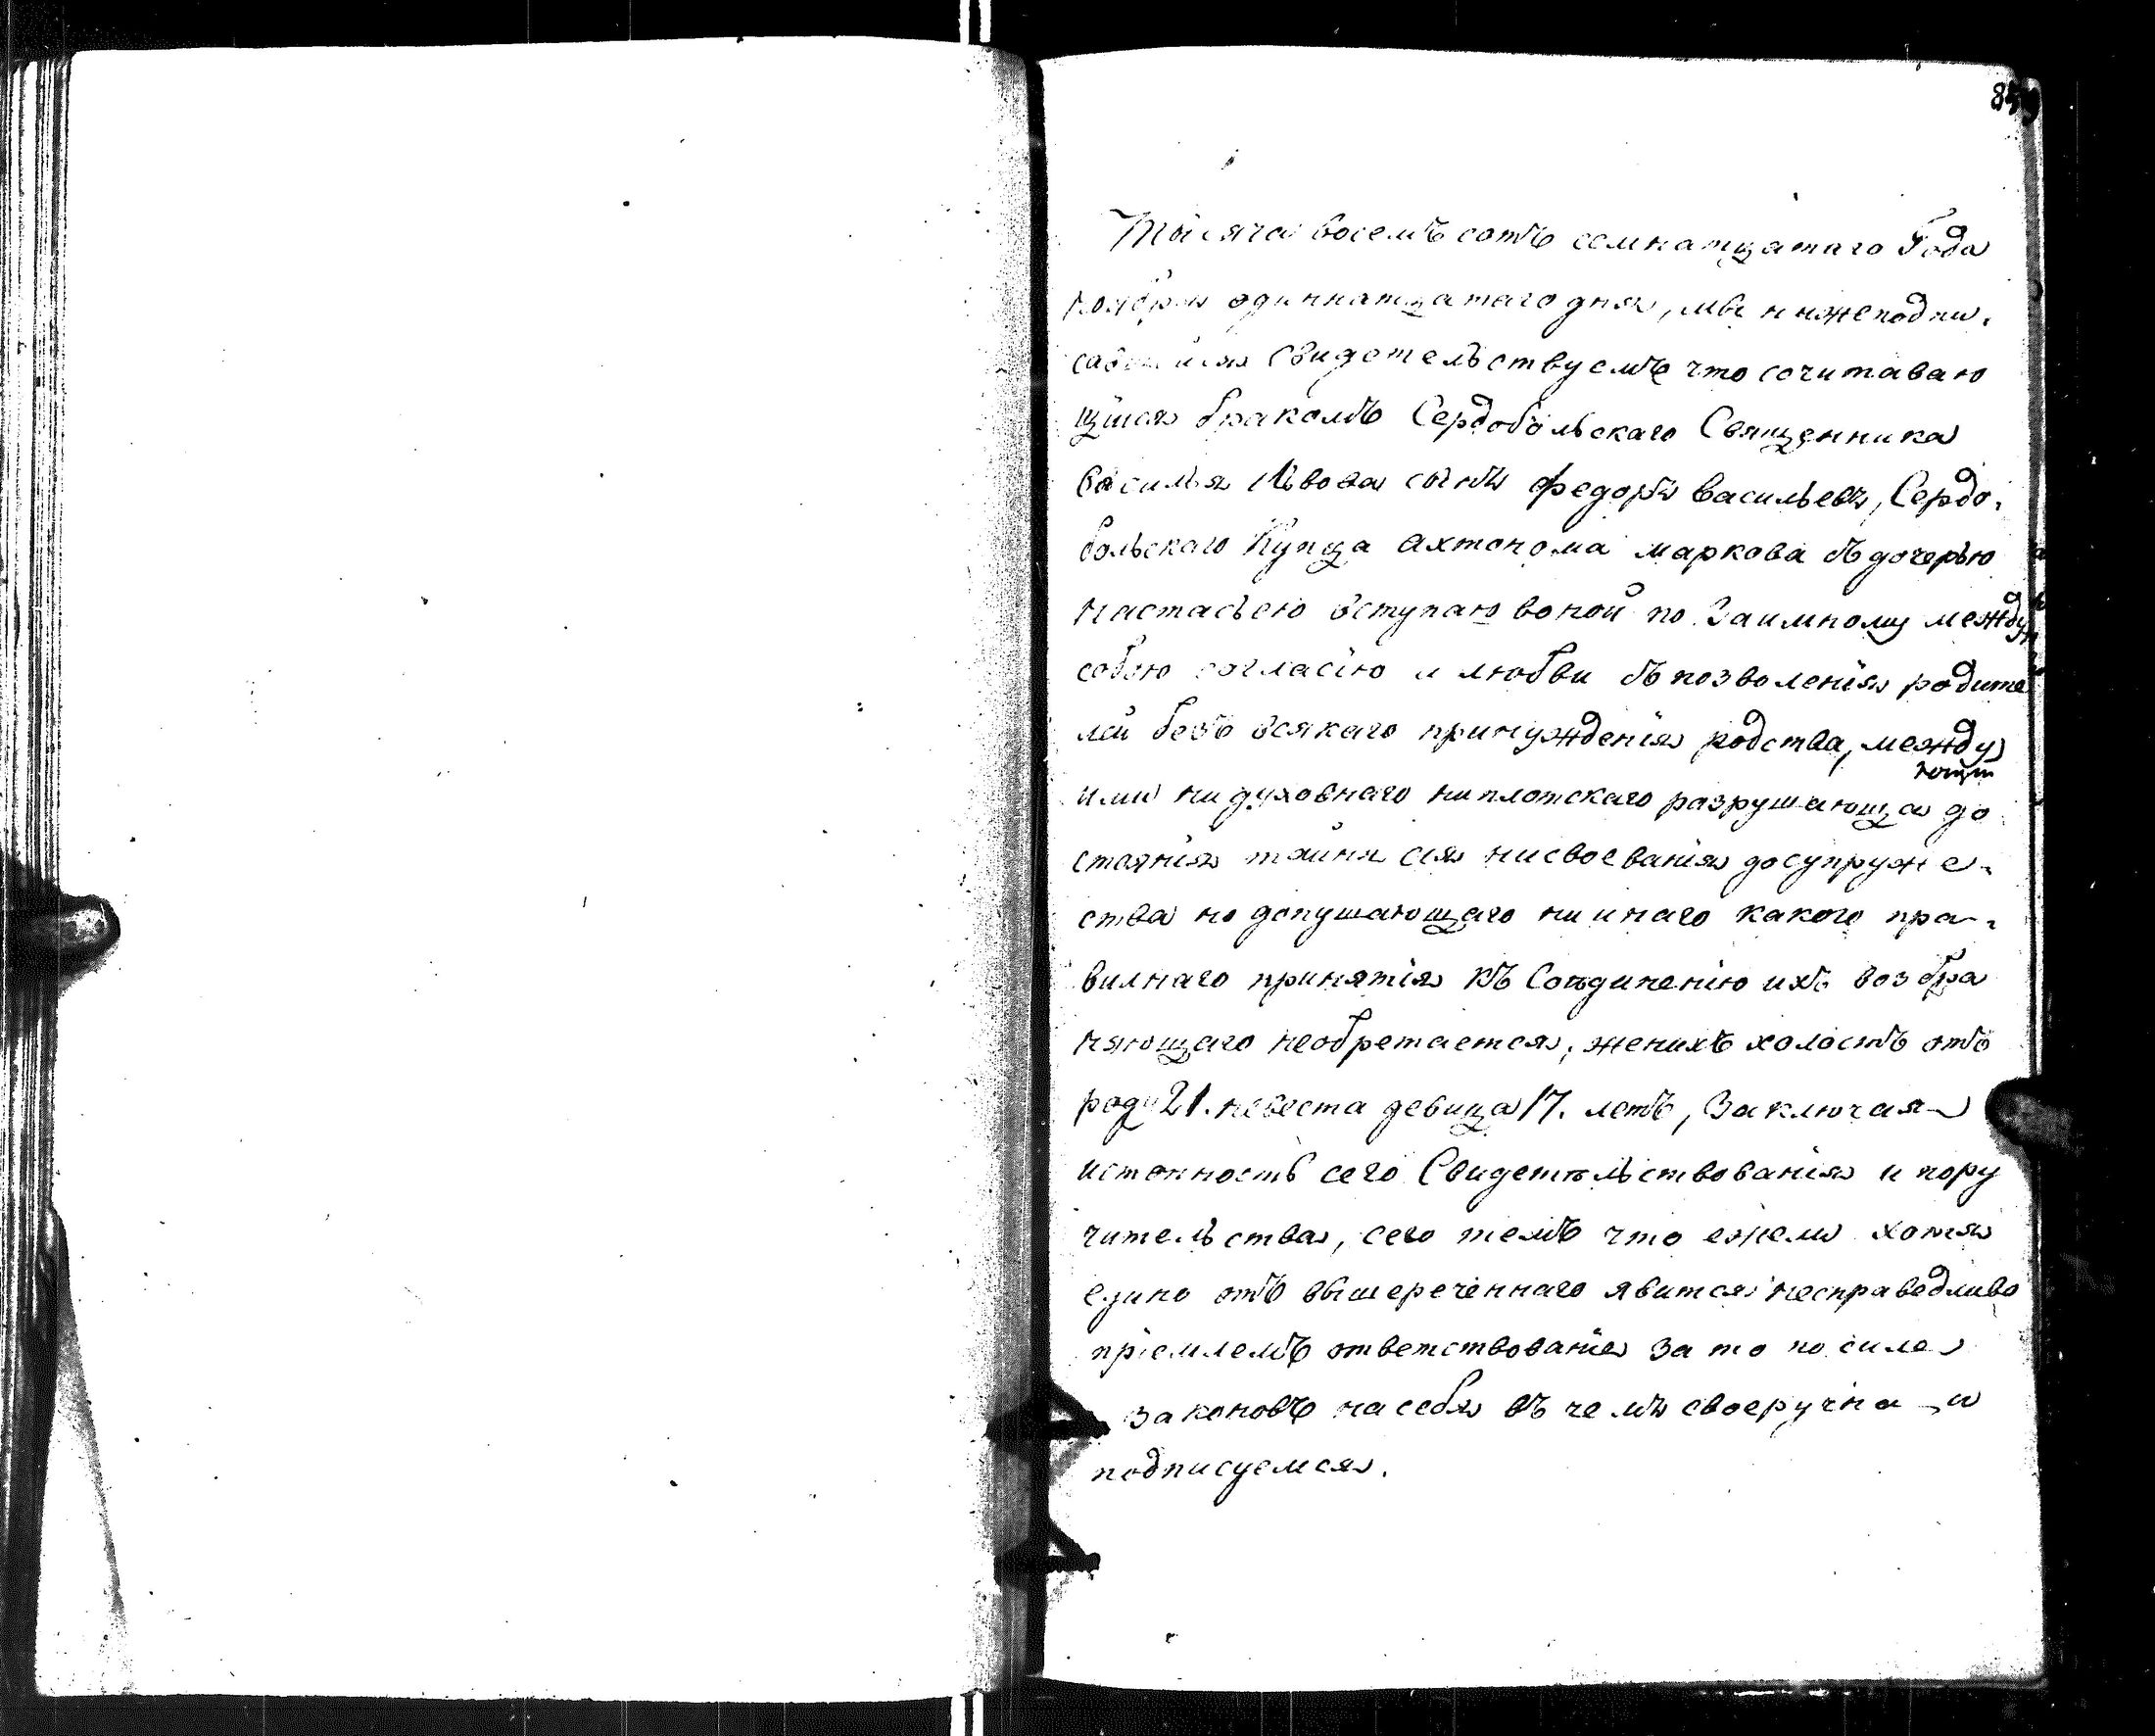 Тысяча восемъ сотъ семнатцатаго Года
ноября одиннатцатаго дня, мы нижеподпи.
савшися Свидетельствуемъ что сочитаваю
щіися бракомъ Сердобольскаго Священника
василья Львова сынъ Федоръ васильевъ, Сердо.
больскаго Купца Ахтонома маркова съ дочерью
настасьею вступаю во ной по Заимному между
собою согласію и любви съ позволенія родите
лей безъ всякаго принужденія родства, между
ими ни духовнаго ни плотскаго разрушающа до
стоянія тайны сия ни своеванія до супруже.
ства не допушающаго ни инаго какого пра.
вилнаго принятія къ Соединению ихъ возбра
няющаго необретается, женихъ холостъ отъ
роду 21. невеста девица 17. летъ, Заключая
истонность сего Свидетельствования и пору
чительства, сего темъ что ежели хотя
едино отъ вышереченнаго явится несправедливо
пріемлемъ ответствованіе за то по силе
законовъ на себя въ чемъ своеручна и
подписуемся.